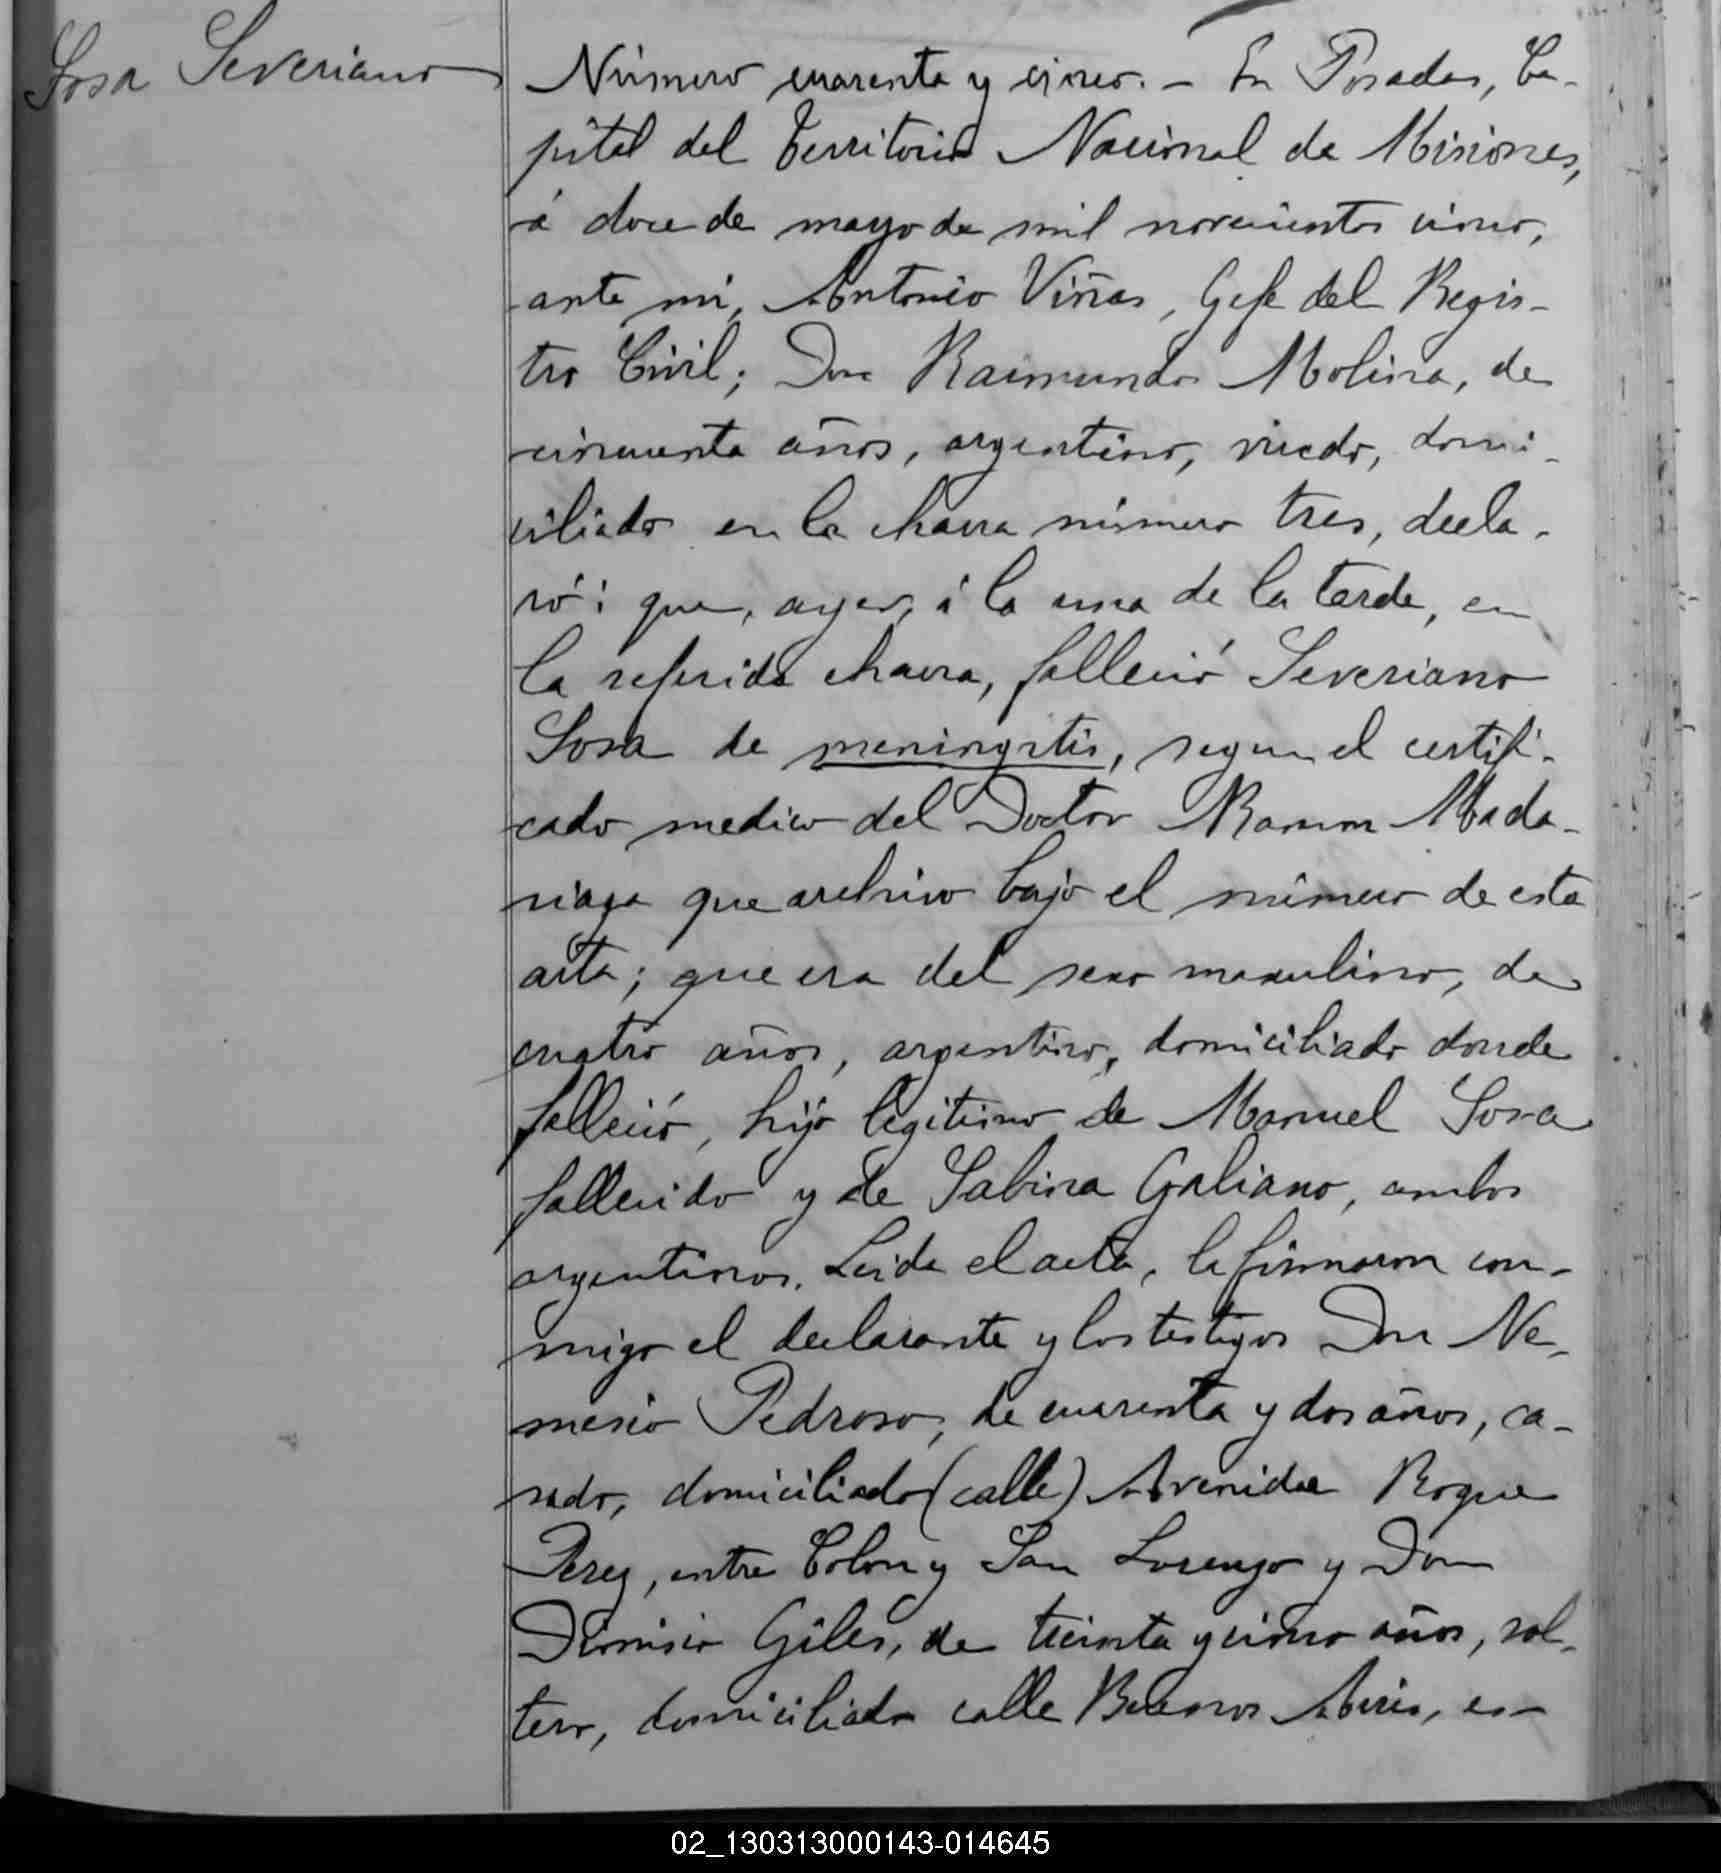 Sosa Severiano
Número cuarenta y cinco. – En Posadas, Ca-
pital del Territorio Nacional de Misiones,
á doce de mayo de mil novecientos cinco,
ante mi, Antonio Viñas, Gefe del Regis-
tro Civil; Don Raimundo Molina, de
cincuenta años, argentino, viudo, domi-
ciliado en la chacra número tres, decla-
ró: que, ayer, á la una de la tarde, en
la referida chacra, falleció Severiano
Sosa de meningitis, segun el certifi-
cado medico del Doctor Ramon Mada-
riaga que archivo bajo el número de esta
acta; que era del sexo masculino, de
cuatro años, argentino, domiciliado donde
falleció, hijo legitimo de Manuel Sosa
fallecido y de Sabina Galiano, ambos
argentinos. Leida el acta, la firmaron con-
migo el declarante y los testigos Don Ne-
mesio Pedroso, de cuarenta y dos años, ca-
sado, domiciliado (calle) Avenida Roque
Perez, entre Colon y San Lorenzo y Don
Dionisio Giles, de treinta y cinco años, sol-
tero, domiciliado calle Buenos Aires, en-
02_130313000143-014645